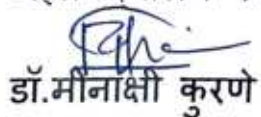 डॉ.मीनाक्षी कुरणे